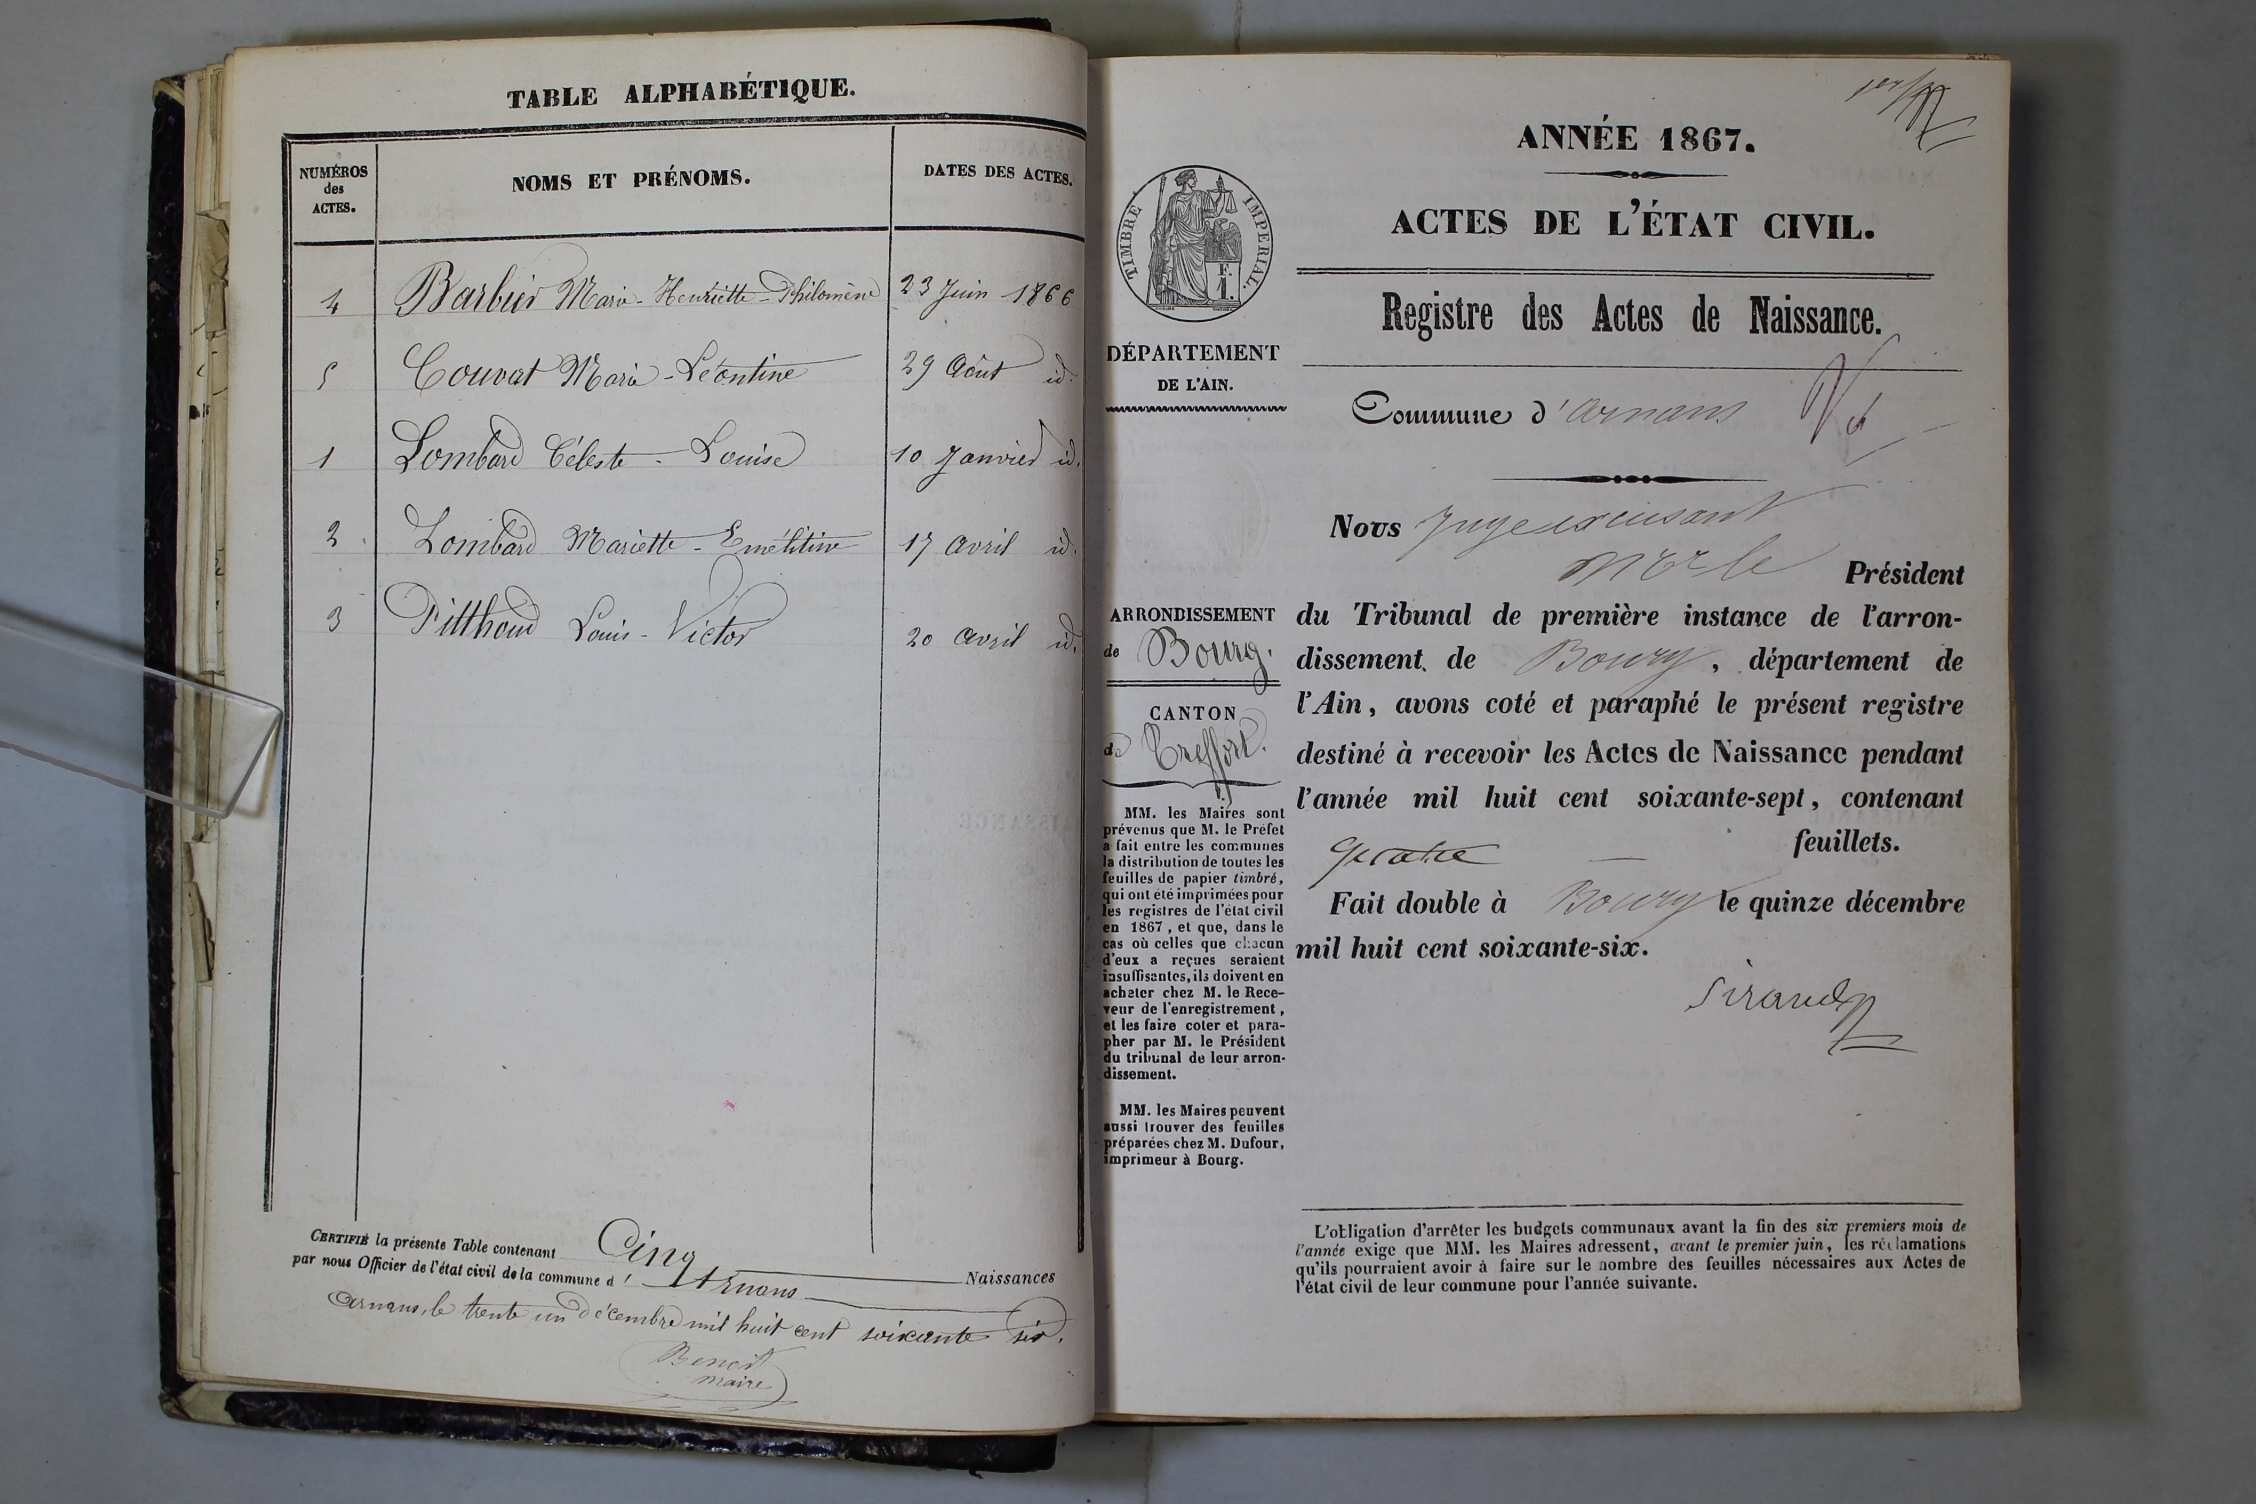 TABLE ALPHABÉTIQUE.
NUMÉROS des ACTES. NOMS ET PRÉNOMS. DATES DES ACTES.
4 Barbier Marie-Henriette-Philomène 23 Juin 1866
5 Couvat Marie-Léontine 29 Août id.
1 Lombard Céleste-Louise 10 Janvier id.
2 Lombard Mariette-Emélitine 17 avril id.
3 Pitthoud Louis-Victor 20 avril id.
CERTIFIÉ la présente Table contenant Cinq Naissances
par nous Officier de l'état civil de la commune d'Arnans
Arnans, le trente un décembre mil huit cent soixante six.
Benoit
maire
1er
ANNÉE 1867.
ACTES DE L'ÉTAT CIVIL.
Registre des Actes de Naissance.
TIMBRE IMPERIAL.
F.
1.
DÉPARTEMENT
DE L'AIN.
Commune d'arnans
Nous Juge
Président
du Tribunal de première instance de l'arron-
dissement de Bourg, département de
l'Ain, avons coté et paraphé le présent registre
destiné à recevoir les Actes de Naissance pendant
l'année mil huit cent soixante-sept, contenant
quatre feuillets.
Fait double à Bourg le quinze décembre
mil huit cent soixante-six.
Sirand
ARRONDISSEMENT
de Bourg.
CANTON
de Treffort.
MM. les Maires sont
prévenus que M. le Préfet
a fait entre les communes
la distribution de toutes les
feuilles de papier timbré,
qui ont été imprimées pour
les registres de l'état civil
en 1867, et que, dans le
cas où celles que chacun
d'eux a reçues seraient
insuffisantes, ils doivent en
acheter chez M. le Rece-
veur de l'enregistrement,
et les faire coter et para-
pher par M. le Président
du tribunal de leur arron-
dissement.
MM. les Maires peuvent
aussi trouver des feuilles
préparées chez M. Dufour,
imprimeur à Bourg.
L'obligation d'arrêter les budgets communaux avant la fin des six premiers mois de
l'année exige que MM. les Maires adressent, avant le premier juin, les réclamations
qu'ils pourraient avoir à faire sur le nombre des feuilles nécessaires aux Actes de
l'état civil de leur commune pour l'année suivante.